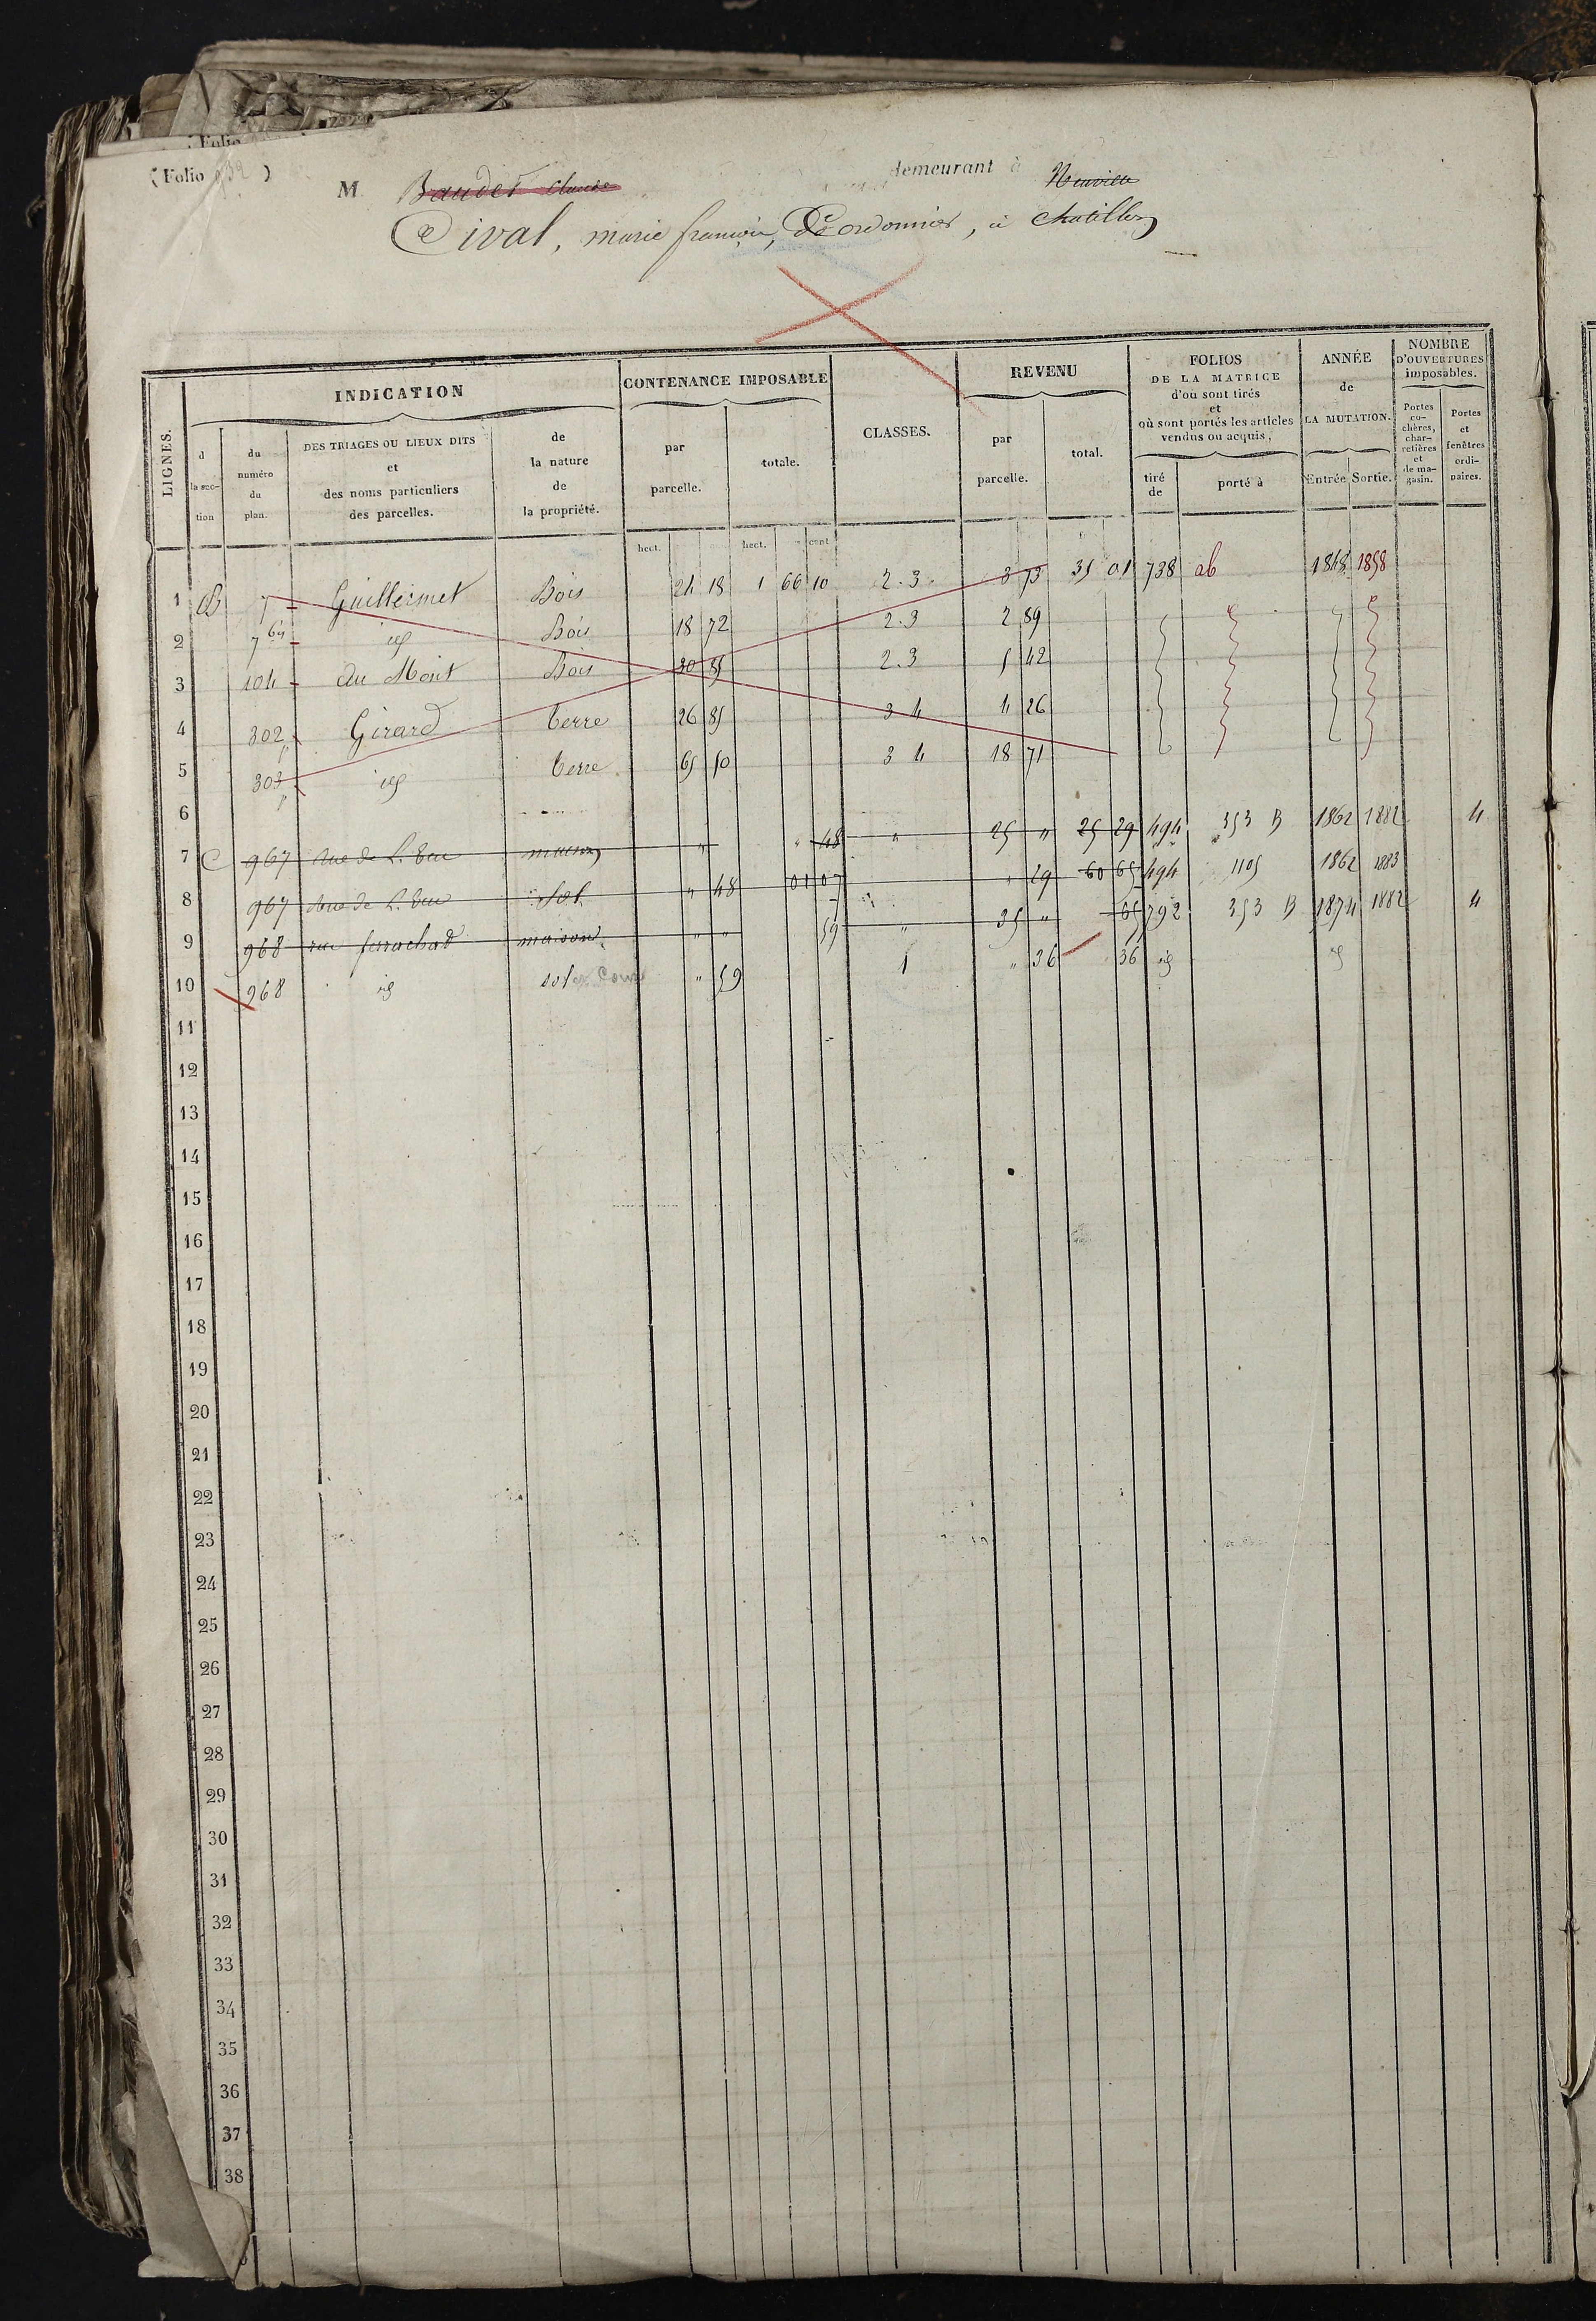 (Folio 932 )
M Baudet Claude demeurant à Neuville
Cival, marie françois, Cordonnier, à Chatillon
LIGNES.
INDICATION
CONTENANCE IMPOSABLE
CLASSES.
REVENU
FOLIOS DE LA MATRICE d'où sont tirés et où sont portés les articles vendus ou acquis.
ANNÉE de LA MUTATION.
NOMBRE D'OUVERTURES imposables.
d la sec- tion
du numéro du plan.
DES TRIAGES OU LIEUX DITS et des noms particuliers des parcelles.
de la nature de la propriété.
par parcelle.
totale.
par parcelle.
total.
tiré de
porté à
Entrée
Sortie.
Portes co- chères, char- retières et de ma- gasin.
Portes et fenêtres ordi- naires.
hect. hect. cent
1 B 7 Guillermet Bois 24 18 1 66 10 2.3 3 73 35 01 738 ab 1848 1858
2 7 bis id Bois 18 72 2.3 2 89
3 104 au Mont Bois 30 85 2.3 5 42
4 302 p Girard terre 26 85 3 4 4 26
5 303 p id terre 65 50 3 4 18 71
6
7 C 967 Rue de L. maison " " 48 " 25 " 25 29 494 353 B 1862 1882 4
8 967 Rue de L. Sol " 48 01 07 " 29 60 65 494 1105 1862 1883
9 968 rue ferrachat maison " " 59 " 35 " 65 792 353 B 1874 1882 4
10 968 id sol et Cour " 59 1 " 36 36 id id
11
12
13
14
15
16
17
18
19
20
21
22
23
24
25
26
27
28
29
30
31
32
33
34
35
36
37
38